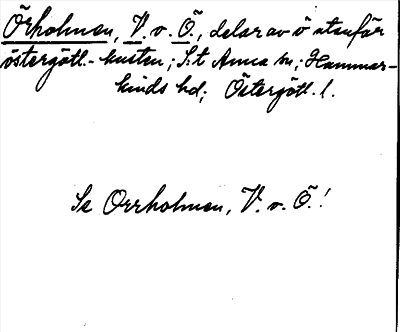 Örholmen, V. o. Ö., delar av ö utanför
östergötl.-kusten; S:t Anna sn; Hammar-
kinds hd; Östergötl. l.
Se Orrholmen, V. o. Ö.!